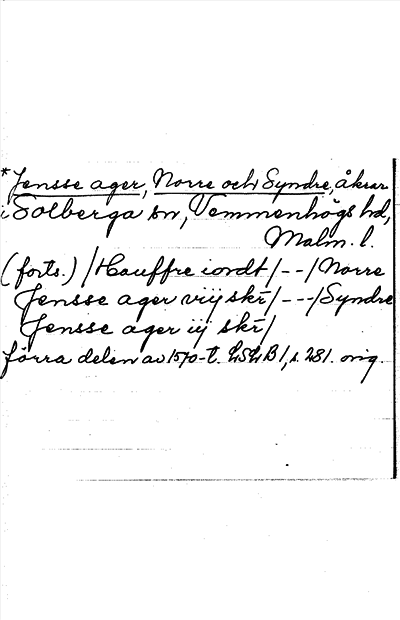 *Jensse ager, Norre och Syndre, åkrar
i Solberga sn, Vemmenhögs hd,
Malm. l.
(forts.) /Hauffre iordt/--/Norre
Jensse ager viij skr̄/---/Syndre
Jensse ager iij skr̄/
förra delen av 1570-t. LSLB1, s. 281. orig.